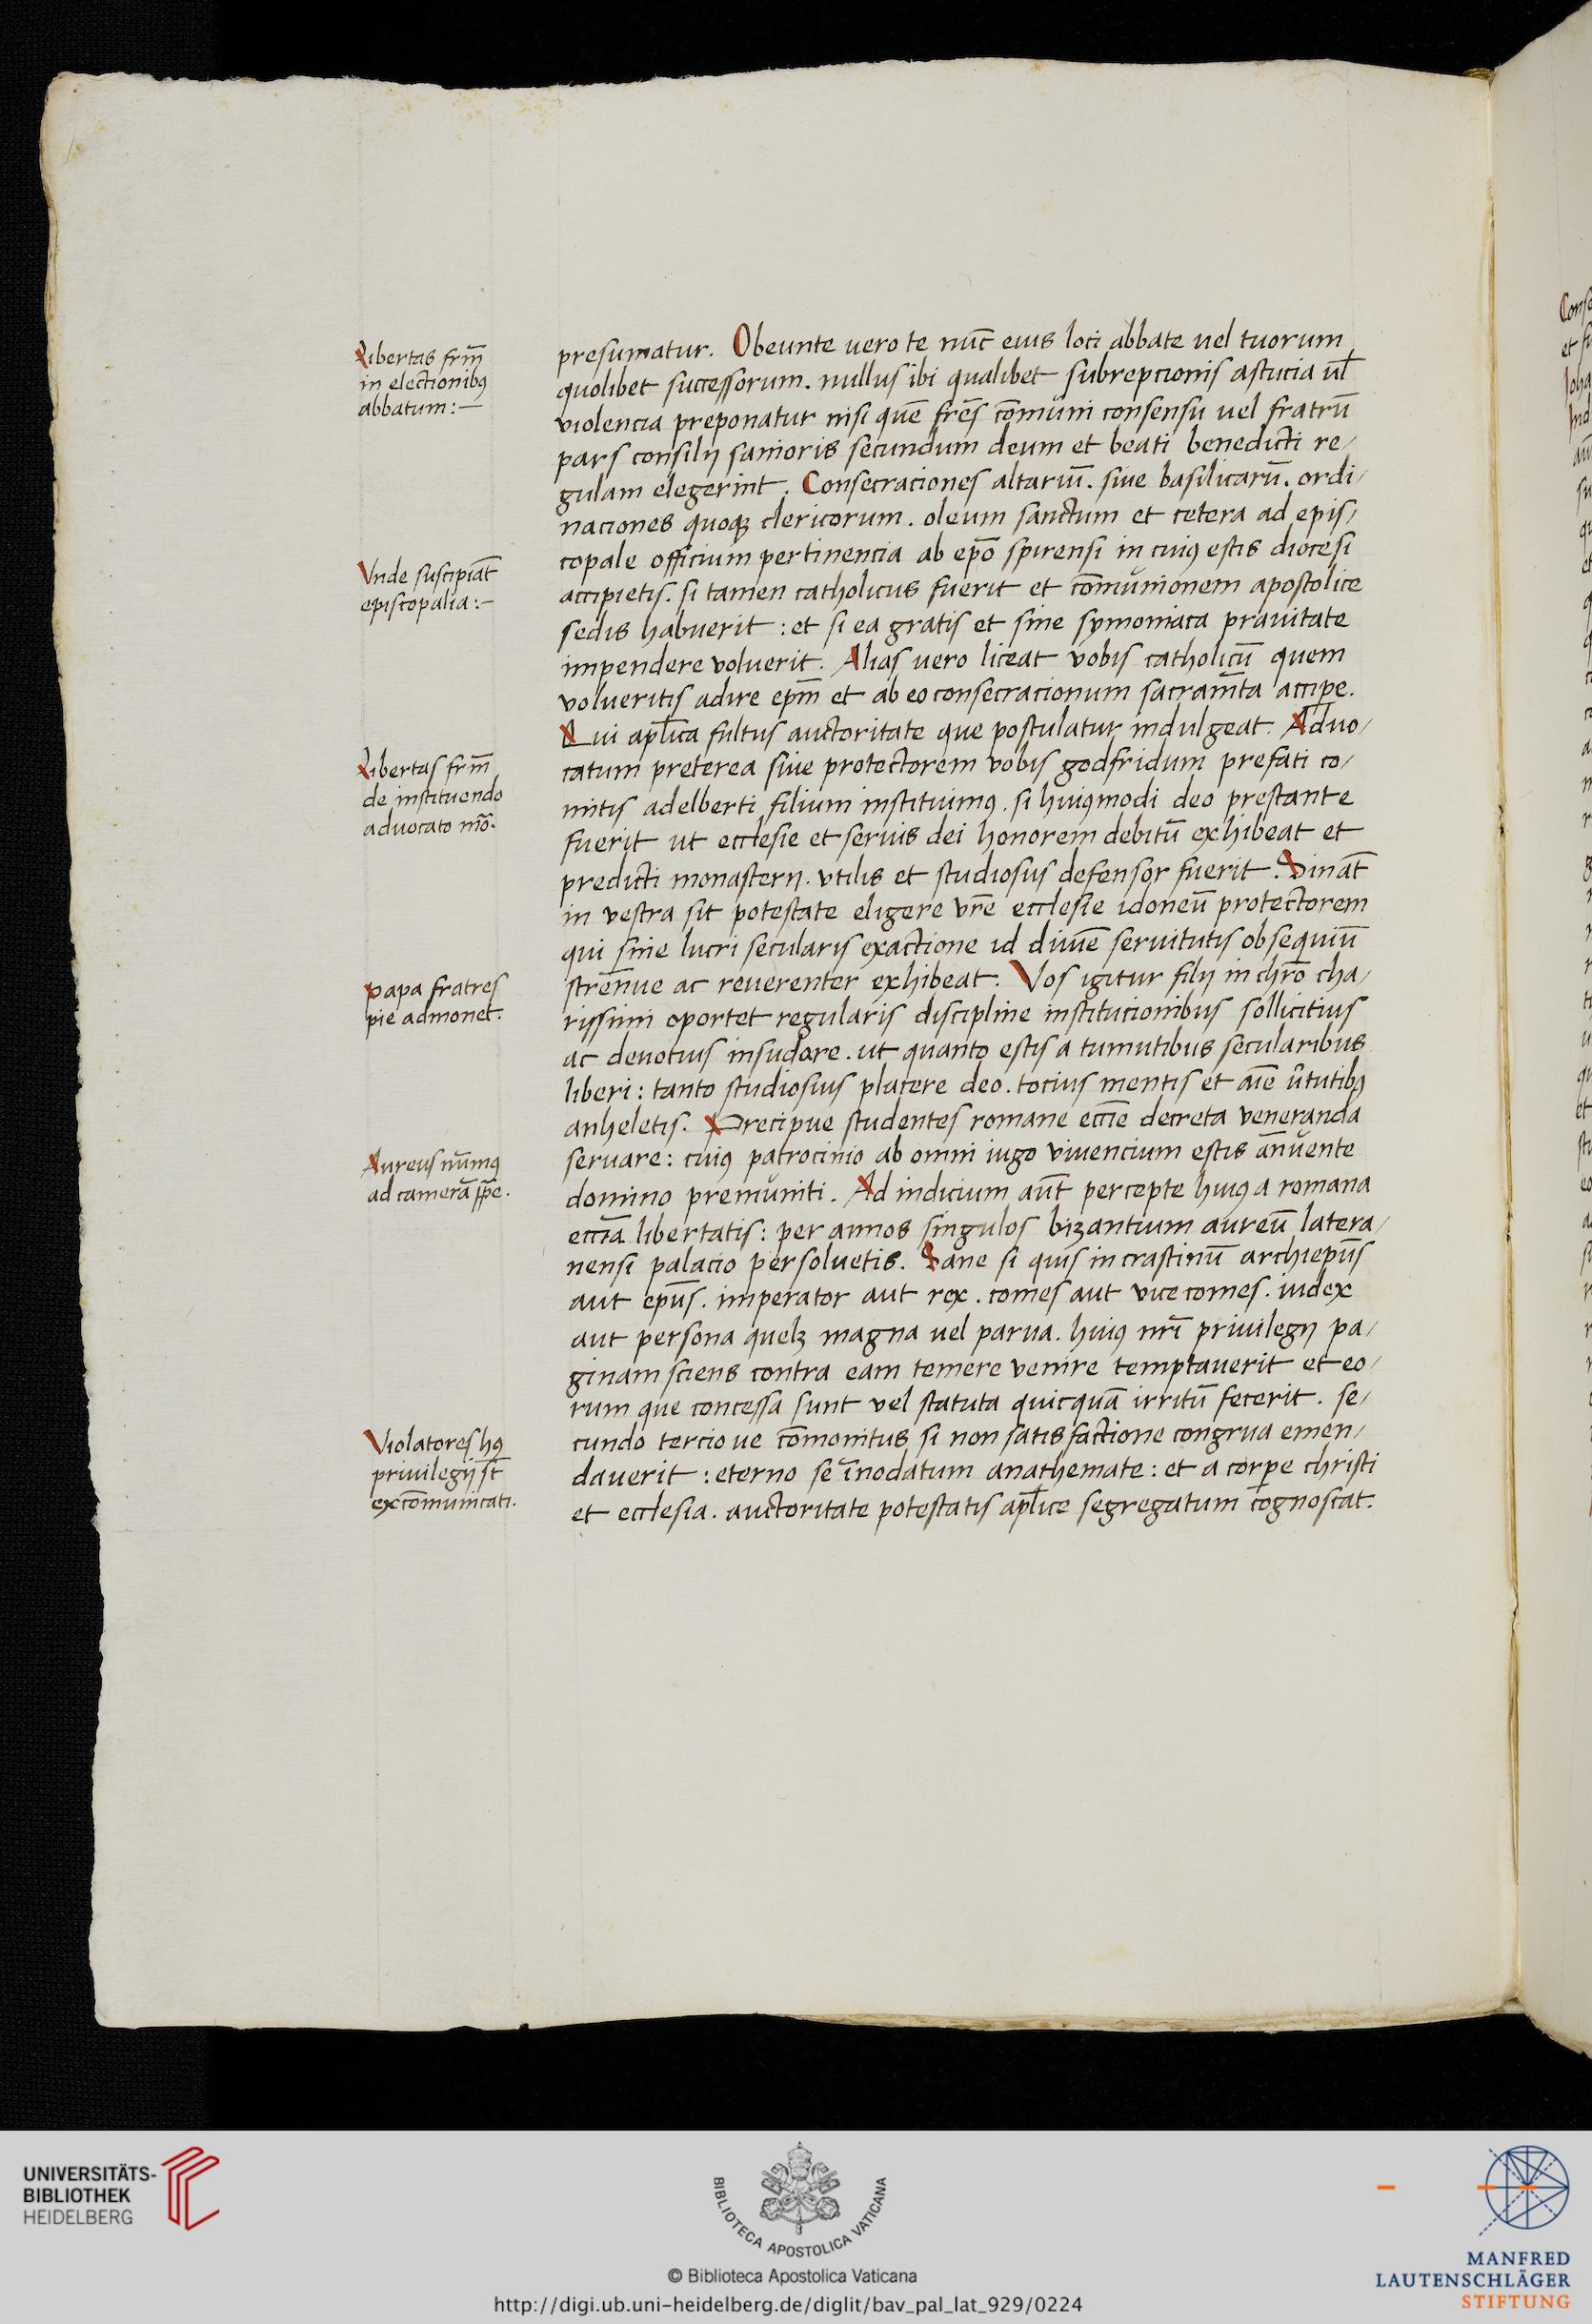 Libertas frm̄
in electionibꝰ
abbatum:—
Vnde suscipiāt
episcopalia:—
Libertas frm̄
de instituendo
aduocato nr̄o.
Papa fratres
pie admonet.
Aureus nūmꝰ
ad camerā pp̄e.
Violatores hꝰ
priuilegij st̄
excōmunicati.
presumatur. Obeunte uero te nūc eius loci abbate uel tuorum
quolibet successorum. nullus ibi qualibet subrepcionis astucia ul̄
violencia preponatur nisi quē frēs cōmuni consensu uel fratrū
pars consilij sanioris secundum deum et beati benedicti re/
gulam elegerint. Consecraciones altariū. siue basilicarū. ordi/
naciones quoqꝫ clericorum. oleum sanctum et cetera ad epis/
copale officium pertinencia ab ep̄o spirensi in cuiꝰ estis diocesi
accipietis. si tamen catholicus fuerit et cōmunionem apostolice
sedis habuerit : et si ea gratis et sine symoniaca prauitate
impendere voluerit. Alias uero liceat vobis catholicū quem
volueritis adire epm̄ et ab eo consecracionum sacram̄ta accipe.
Qui apl̄ica fultus auctoritate que postulatur indulgeat. Aduo/
catum preterea siue protectorem vobis godfridum prefati co/
mitis adelberti filium instituimꝰ. si huiꝰmodi deo prestante
fuerit ut ecclesie et seruis dei honorem debitū exhibeat et
predicti monasterij. vtilis et studiosus defensor fuerit. Sin aūt
in vestra sit potestate eligere vr̄e ecclesie idoneū protectorem
qui sine lucri secularis exactione id diuīe seruitutis obsequiū
strennue ac reuerenter exhibeat. Vos igitur filij in chr̄o cha/
rissimi oportet regularis discipline institucionibus sollicitius
ac deuotius insudare. ut quanto estis a tumultibus secularibus
liberi : tanto studiosius placere deo. tocius mentis et aīe v̄tutibꝰ
anheletis. Precipue studentes romane eccīe decreta veneranda
seruare : cuiꝰ patrocinio ab omni iugo viuencium estis annuente
domino premuniti. Ad indicium aūt percepte huiꝰ a romana
eccīa libertatis : per annos singulos bizantium aureū latera/
nensi palacio persoluetis. Sane si quis in crastinū archiepūs
aut epūs. imperator aut rex. comes aut vicecomes. iudex
aut persona quelꝫ magna uel parua. huiꝰ nrī priuilegij pa/
ginam sciens contra eam temere venire temptauerit et eo/
rum que concessa sunt vel statuta quicquā irritū fecerit. se/
cundo tercioue cōmonitus si non satisfactione congrua emen/
dauerit : eterno se īnodatum anathemate : et a corpe christi
et ecclesia. auctoritate potestatis apl̄ice segregatum cognoscat.
UNIVERSITÄTS-
BIBLIOTHEK
HEIDELBERG
BIBLIOTECA APOSTOLICA VATICANA
© Biblioteca Apostolica Vaticana
http://digi.ub.uni-heidelberg.de/diglit/bav_pal_lat_929/0224
MANFRED
LAUTENSCHLÄGER
STIFTUNG